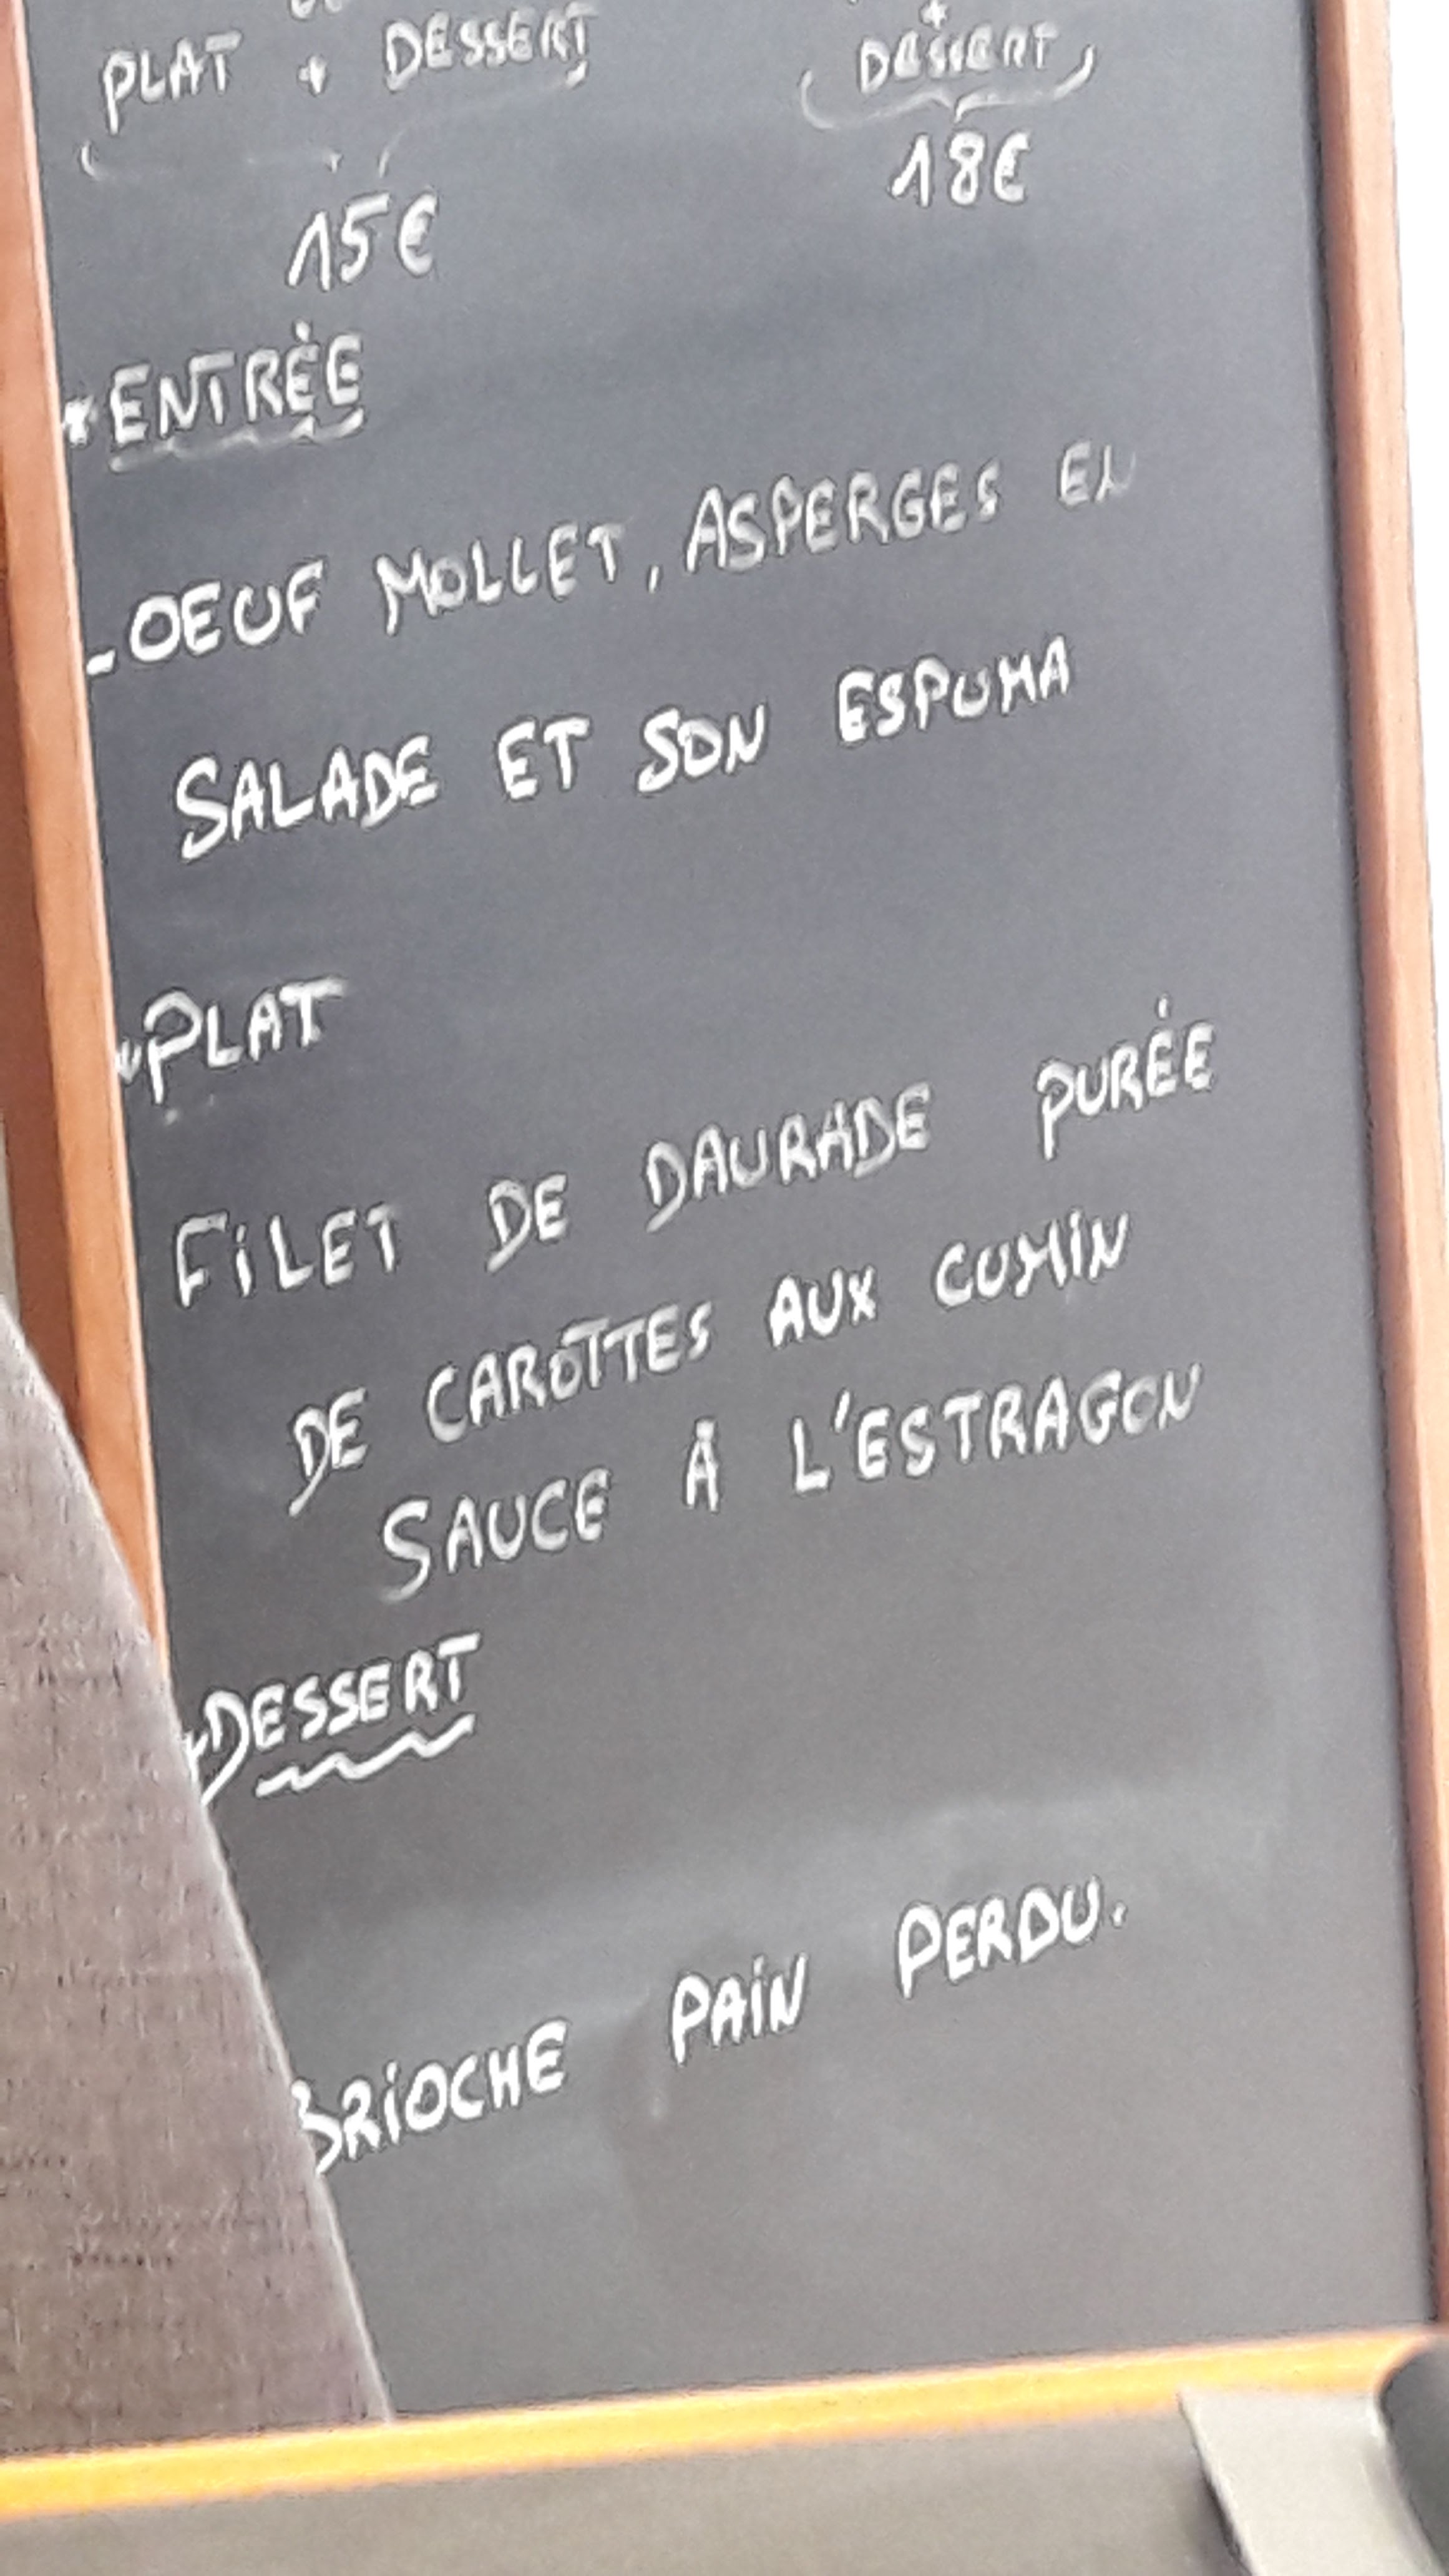 PLAT + DESSERT
+
DESSERT
15€
18€
* ENTRÉE
- OEUF MOLLET, ASPERGES EN
SALADE ET SON ESPUMA
* PLAT
FILET DE DAURADE PURÉE
DE CAROTTES AUX CUMIN
SAUCE À L'ESTRAGON
* DESSERT
BRIOCHE PAIN PERDU.